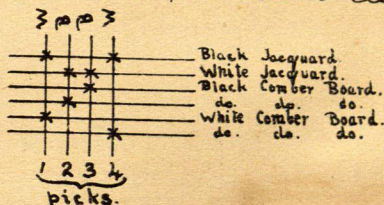 W B B W
Black Jacquard.
White Jacquard.
Black Comber Board.
do. do. do.
White Comber Board.
do. do. do.
1 2 3 4
picks.